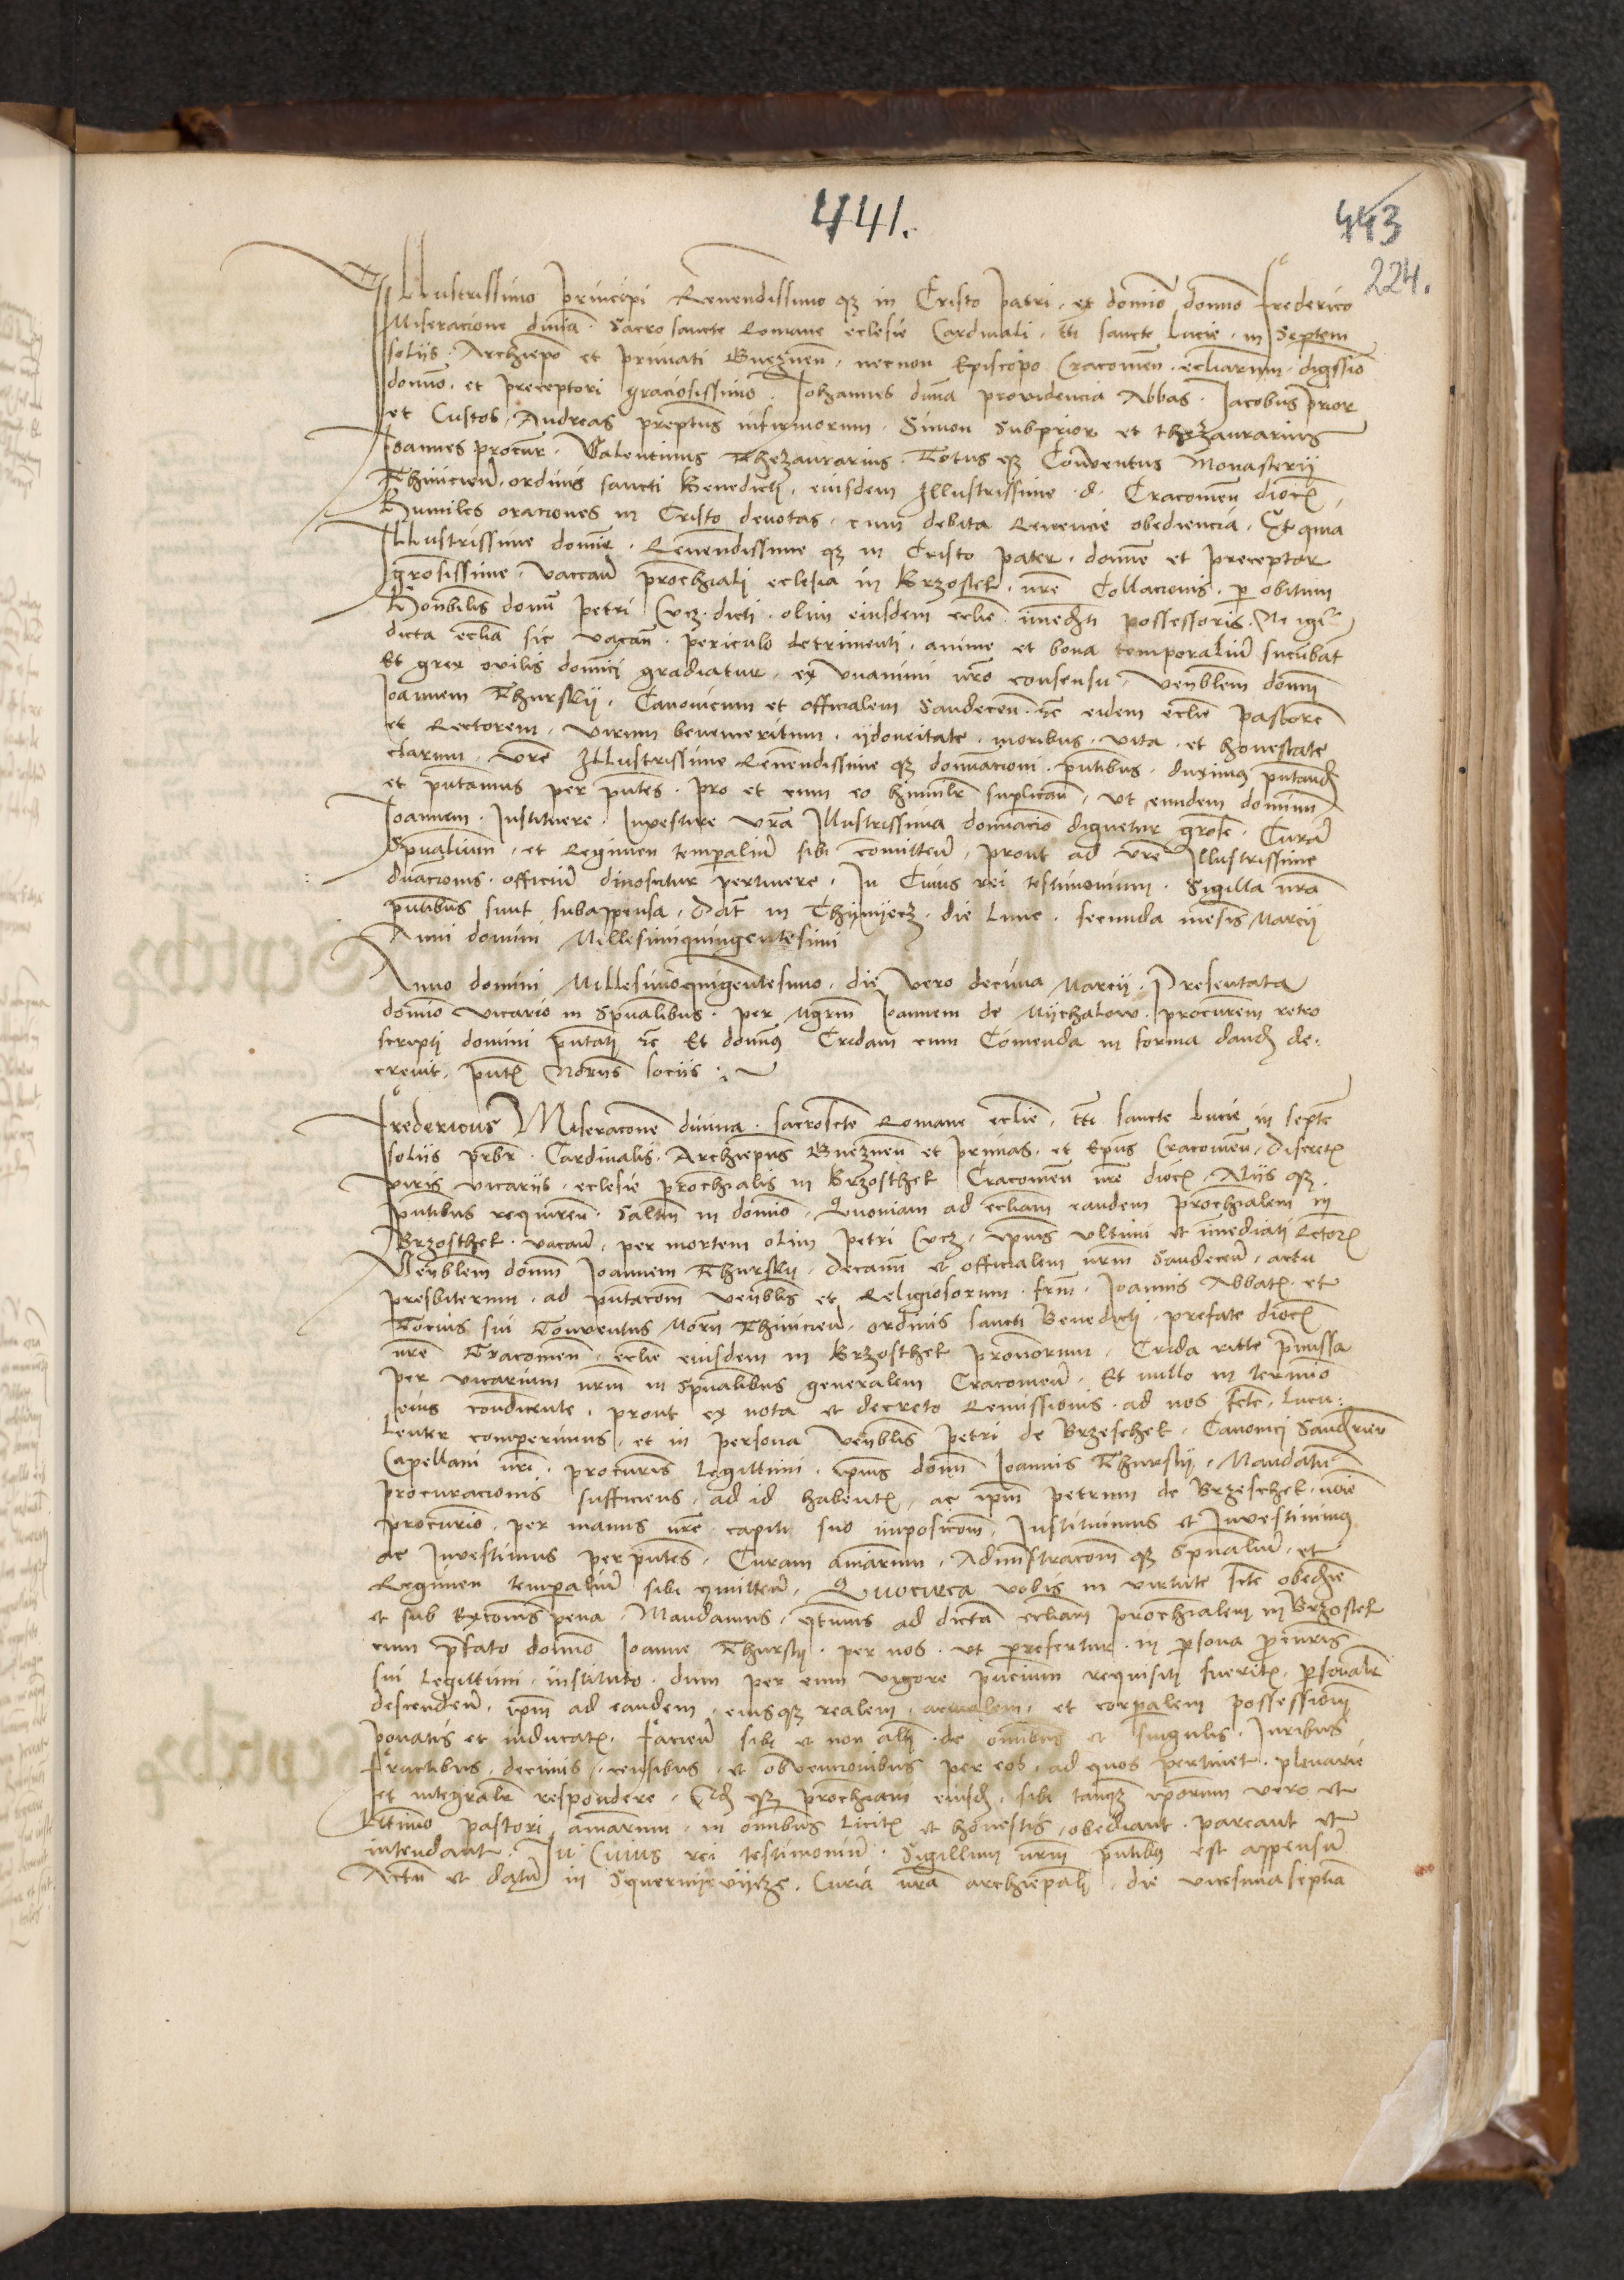 441.
443
224.
Illustrissimo principi Reuendissimo q3 in Cristo patri et domino domno Frederico
Miseracione diuīa Sacro sancte Romane eclesie Cardinali tti sancte Lucie in Septem
soliis Archiepō et primati Gneznen̄ necnon Episcopo Cracouien̄ ecliarum digssīo
domno et preceptori graciosissimo Iohannes diuīa prouidencia Abbas Iacobus Prior
et Custos Andreas preptus infirmorum Simon Subprior et thezaurarius
Ioannes procur Valentinus Thezaurarius Totus q3 Conuentus Monasterij
Thinicien̄ ordinis sancti Benedicti eiusdem Illustrissime d. Cracouien̄ dioc̄
Humiles oraciones in Cristo deuotas cum debita Reuencie obediencia Et quia
Illustrissime domine Reuendissime q3 in Cristo pater domne et preceptor
grosissime vaccan̄ prochiali eclesia in Brzostek nre Collacionis p obitum
Honbilis domī Petri Cvcz dicti olim eiusdem eclie imedīti possessoris Ne igr
dicta eclīa sic vacan̄ periculo detrimenti anime et bona temporaliū sucūbat
Et grex ouilis domici gradiatur ex vnanimi nro consensu venblem domī
Ioannem Thurskij Canonicum et officialem Sandecen̄ rc eidem eclie pastorē
et Rectorem virum benemeritum ijdoneitate moribus vita et honestate
clarum vre Illustrissime Reuendissime q3 domnacioni pntibus duximus pntand
et pntamus per pntes pro et cum eo humilr suplican̄ vt eundem dominum
Ioannem Instituere Inuestire vra Illustrissima domnacio dignetur grose Curā
Spualium et Regimen temporaliū sibi comitten̄ prout ad vre Illustrissime
dnacionis officiū dinoscitur pertinere In Cuius rei testimonium Sigilla nra
pntibus sunt subappensa Dat in Thijnijecz die Lune secunda mesis Marcij
Anni domini Millesimiquingentesimi
Anno domini Millesimoquigentesimo die vero decima Marcij Presentata
domino vicario in Spualibus per Mgrm Ioannem de Mijchalow procurem retro
scripti domini pntati rc Et domnus Cridam cum Comenda in forma dand de-
creuit pntz Noriis sociis
Fredericus Miseracone diuina sacroscte Romane eclie tti sancte Lucie in septē
soliis prbr Cardinalis Archiepus Gneznen̄ et Primas et Epus Cracouien̄ Discretz
viris vicarijs eclesie prochialis in Brzosthek Cracouien̄ nre dioc̄ Aliis q3
pntibus requiren̄ Saltm in domino Quoniam ad ecliam eandem prochialem in
Brzosthek vacan̄ per mortem olim Petri Cvcz ipius vltimi et imediati Rctorz
Venblem domī Ioannem Thurskij decanū et officialem nrm Sandecen̄ actu
presbiterum ad pntacom venblis et Religiosorum frm Ioannis Abbatz et
Tocius sui Conuentus Morij Thinicien̄ ordinis sancti Benedicti prefate dioc̄
nre Cracouien̄ eclie eiusdem in Brzosthek pronorum Crida ritte pmissa
per vicarium nrm in Spualibus generalem Cracouien̄ Et nullo in termino
eius condicente prout ex nota et decreto Remissionis ad nos scte lucu-
lenter comperimus et in persona venblis Petri de Brzeschek Canonici Sandrien̄
Capellani nri procuris legittimi ipius domī Ioannis Thurskij Mandatū
procuracionis sufficiens ad id habentz ac ipm Petrum de Brzeschek noie
procurio per manus nre capiti suo imposicom Instituimus et Inuestiuimus
ac Inuestimus per pntes Curam amarum Adminstracom q3 Spualiū et
Regimen temporaliū sibi comitten̄ Quocirca vobis in virtute scte obedie
et sub Excomis pena Mandamus qtnus ad dictā ecliam prochialem in Brzostek
cum pfato domno Ioanne Thurskij per nos vt prefertur in psona pcuris
sui legittimi instituto dum per eum vigore pncium requisiti fueritz psonalr
descenden̄ ipm ad eandem eiusq3 realem actualem et corpalem possessionē
ponatis et inducatz Facien̄ sibi et non altri de omnibus et singulis Iuribus
fructibus decimis censibus et obuencionibus per eos ad quos pertinet plenarie
et integralr respondere prochiani eiusd sibi tanq3 ipsorum vero et
lttimo pastori amarum in omnibus licitz et honestis obediant pareant et
intendant In Cuius rei testimoniū Sigillum nrm pntibus est appensū
Actū et datū in Squernijevijcze Curia nra archiepali die vicesimaseptia